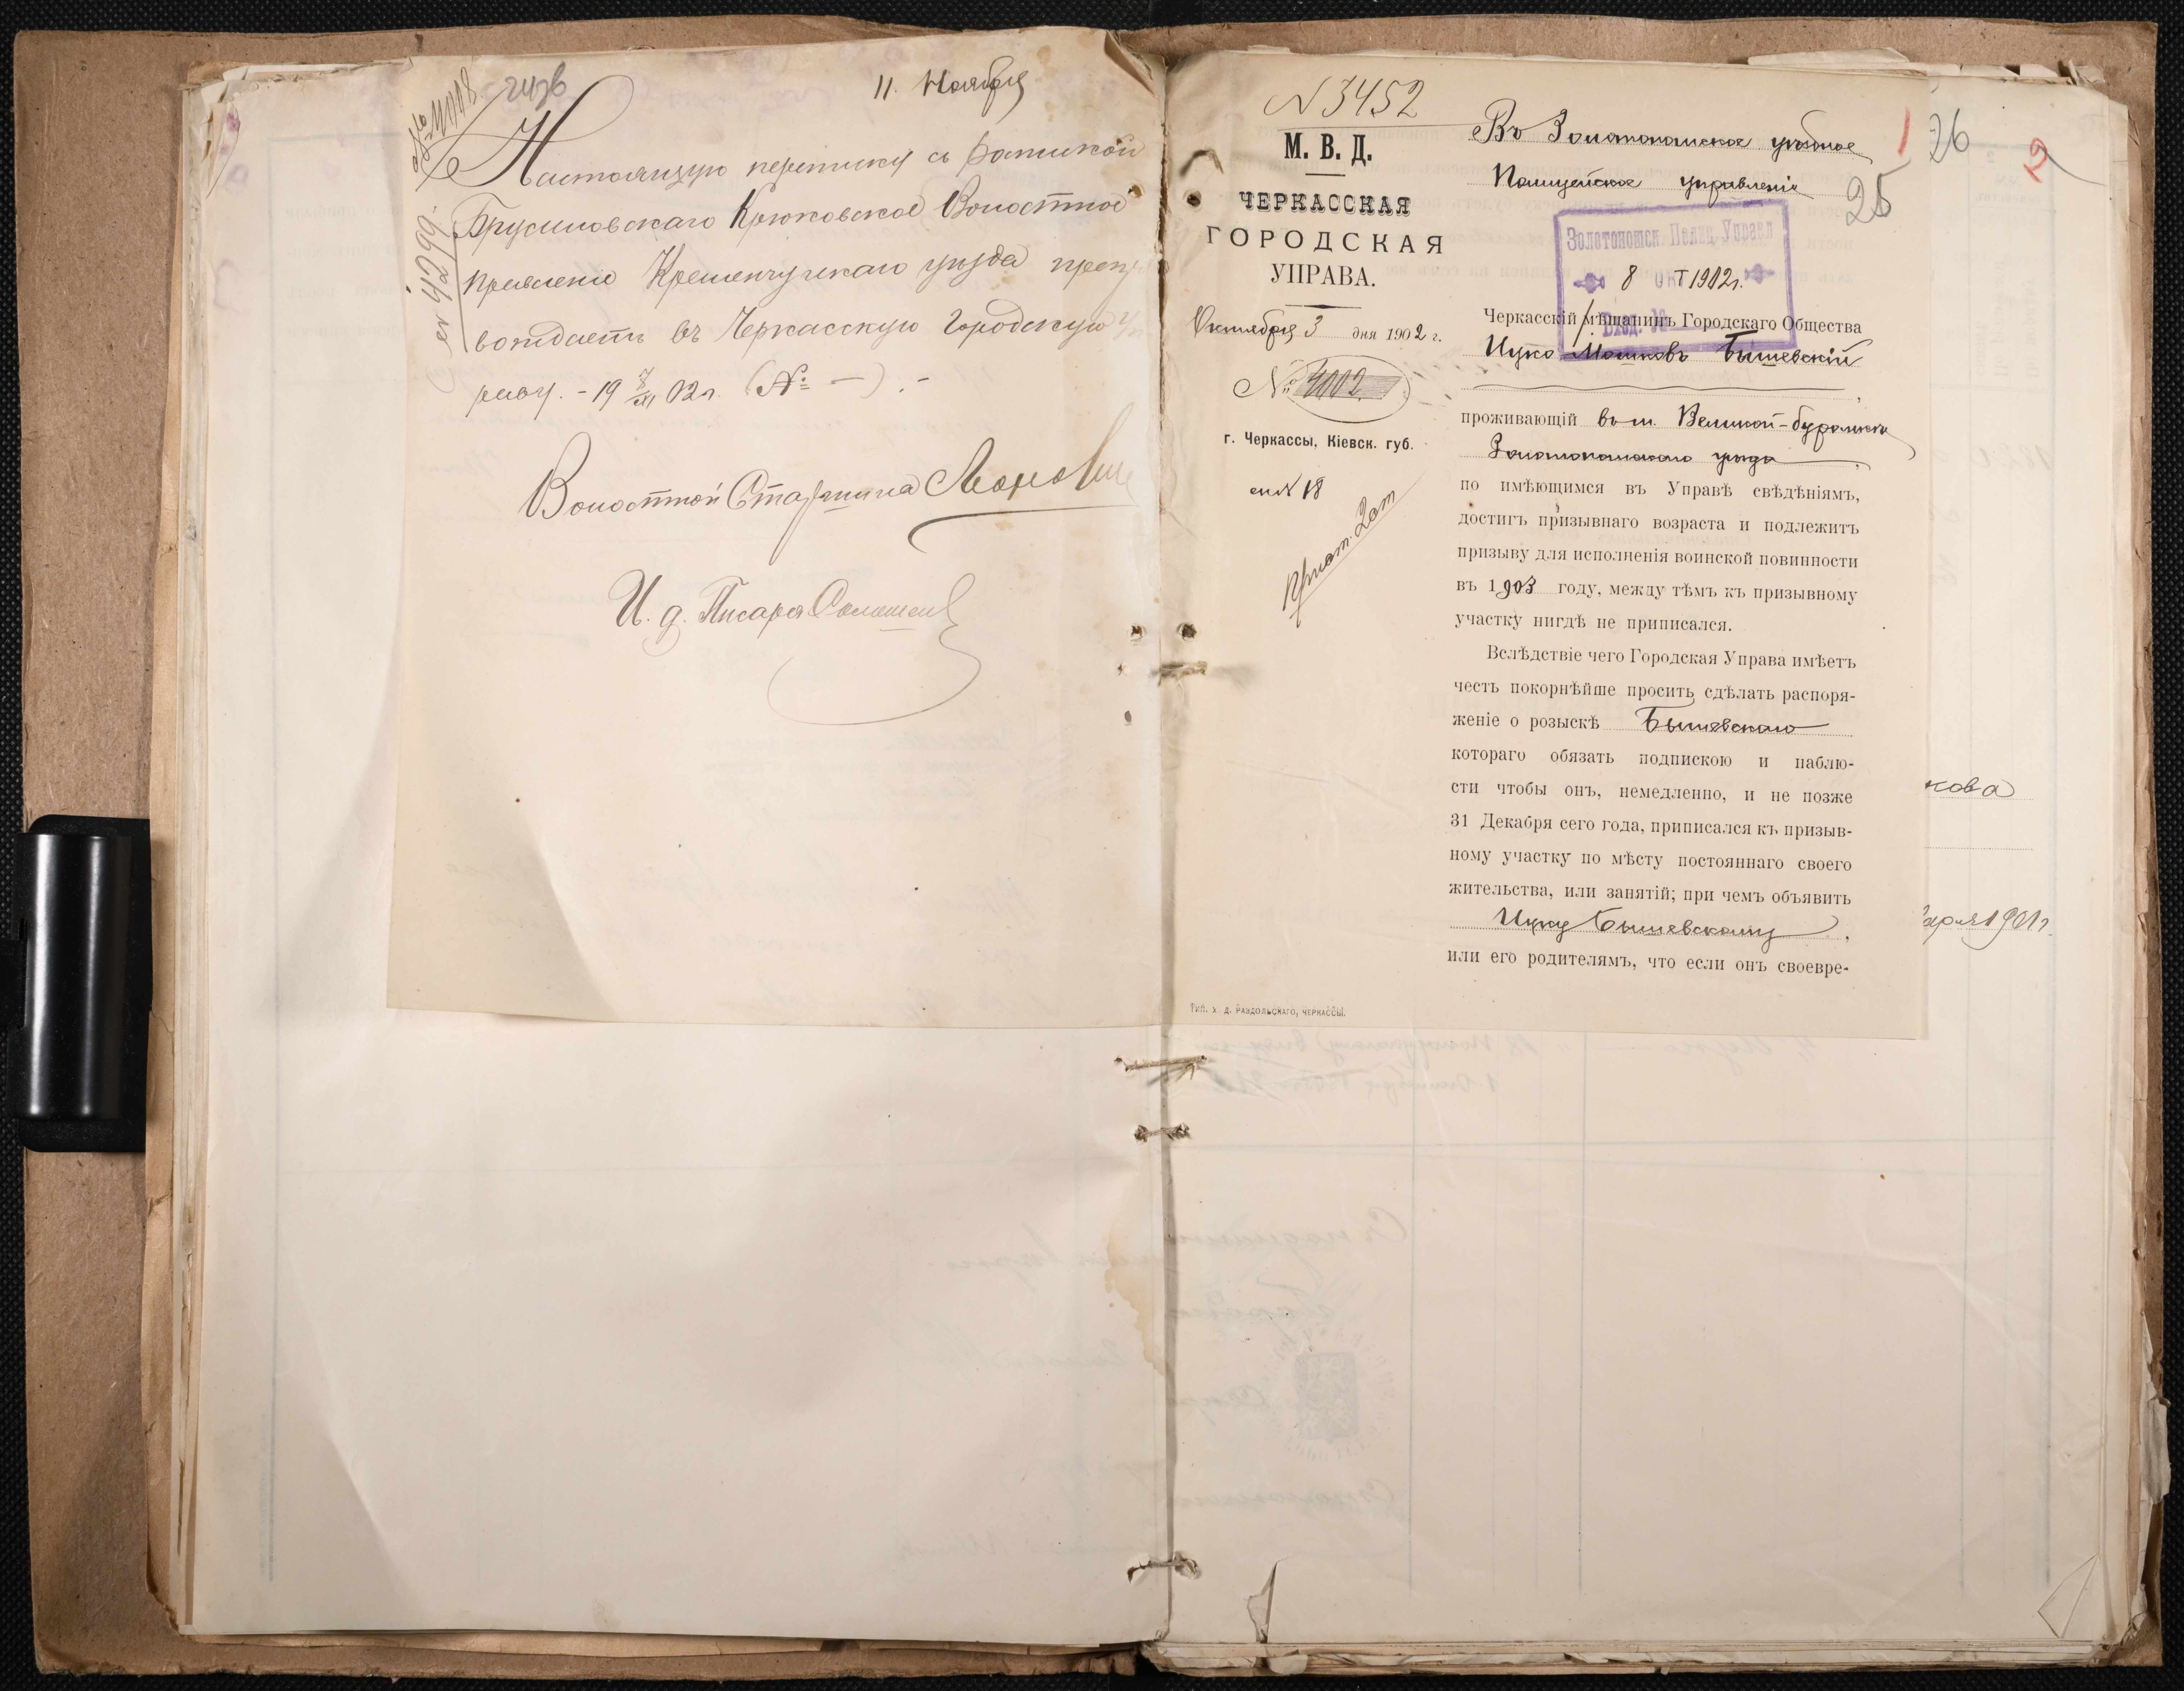 11. Ноября
Настоящую переписку съ роспиской
Брусиловскаго Крюковское Волостное
Правленіе Кременчугскаго уѣзда препро
вождаетъ въ Черкасскую Городскую Уп
раву. - 19 7/XI 02 г. (№ —) . -
Волостной Старшина
И. д. Писаря
N 3452
М. В. Д.
ЧЕРКАССКАЯ
ГОРОДСКАЯ
УПРАВА.
Октября 3 дня 1902 г.
№ 4002
г. Черкассы, Кіевск. губ.
N 18
Въ Золотоношское уѣздное
Полицейское управленіе
26
25
2
Золотоношск. Полиц. Управл
8 ОКТ 1902 г.
Вход. №
Черкасскій мѣщанинъ Городскаго Общества
Ицко Мошковъ Бышевскій
проживающій въ м. Великой-Буромкѣ
Золотоношскаго уѣзда
по имѣющимся въ Управѣ свѣдѣніямъ,
достигъ призывнаго возраста и подлежитъ
призыву для исполненія воинской повинности
въ 1903 году, между тѣмъ къ призывному
участку нигдѣ не приписался.
Вслѣдствіе чего Городская Управа имѣетъ
честь покорнѣйше просить сдѣлать распоря-
женіе о розыскѣ Бышевскаго
котораго обязать подпискою и наблю-
сти чтобы онъ, немедленно, и не позже
31 Декабря сего года, приписался къ призыв-
ному участку по мѣсту постояннаго своего
жительства, или занятій; при чемъ объявить
Ицку Бышевскому,
или его родителямъ, что если онъ своевре-
Тип. Х. Д. РАЗДОЛЬСКАГО, ЧЕРКАССЫ.
кова
аря 1901 г.